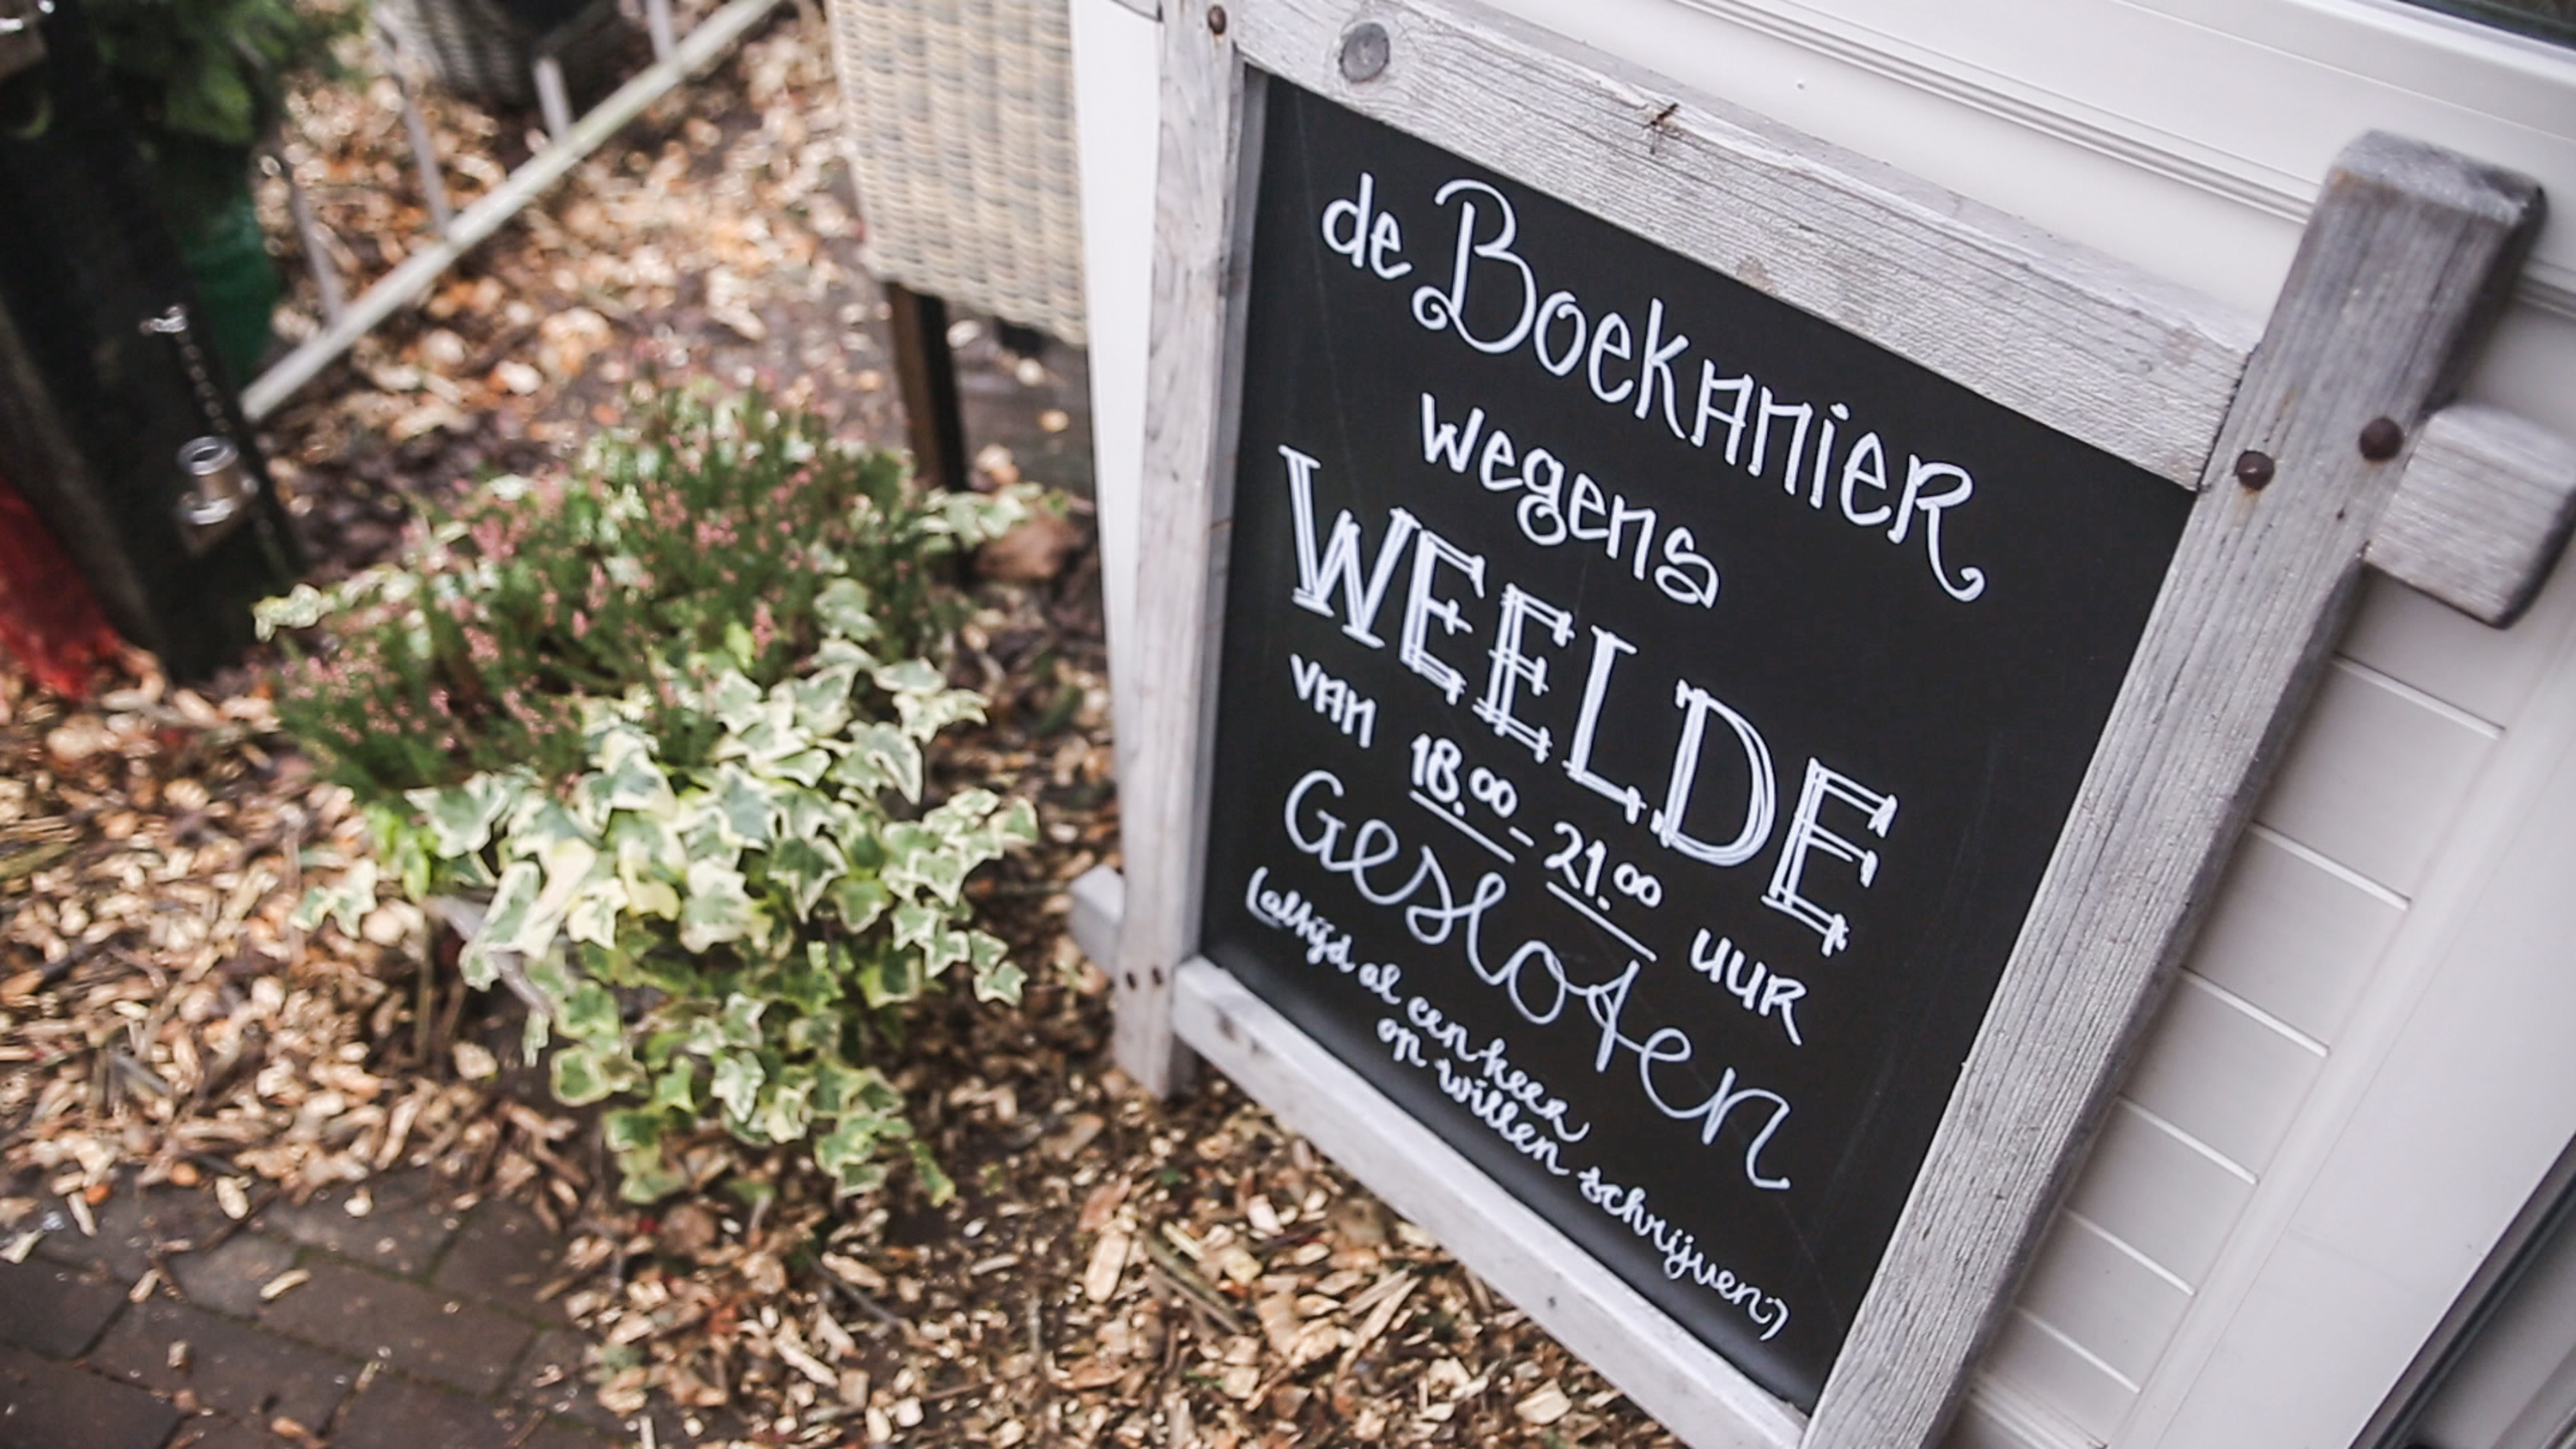 de Boekanier
wegens
WEELDE
van 18.00 - 21.00 uur
Gesloten
(altijd al een keer
op willen schrijven;)